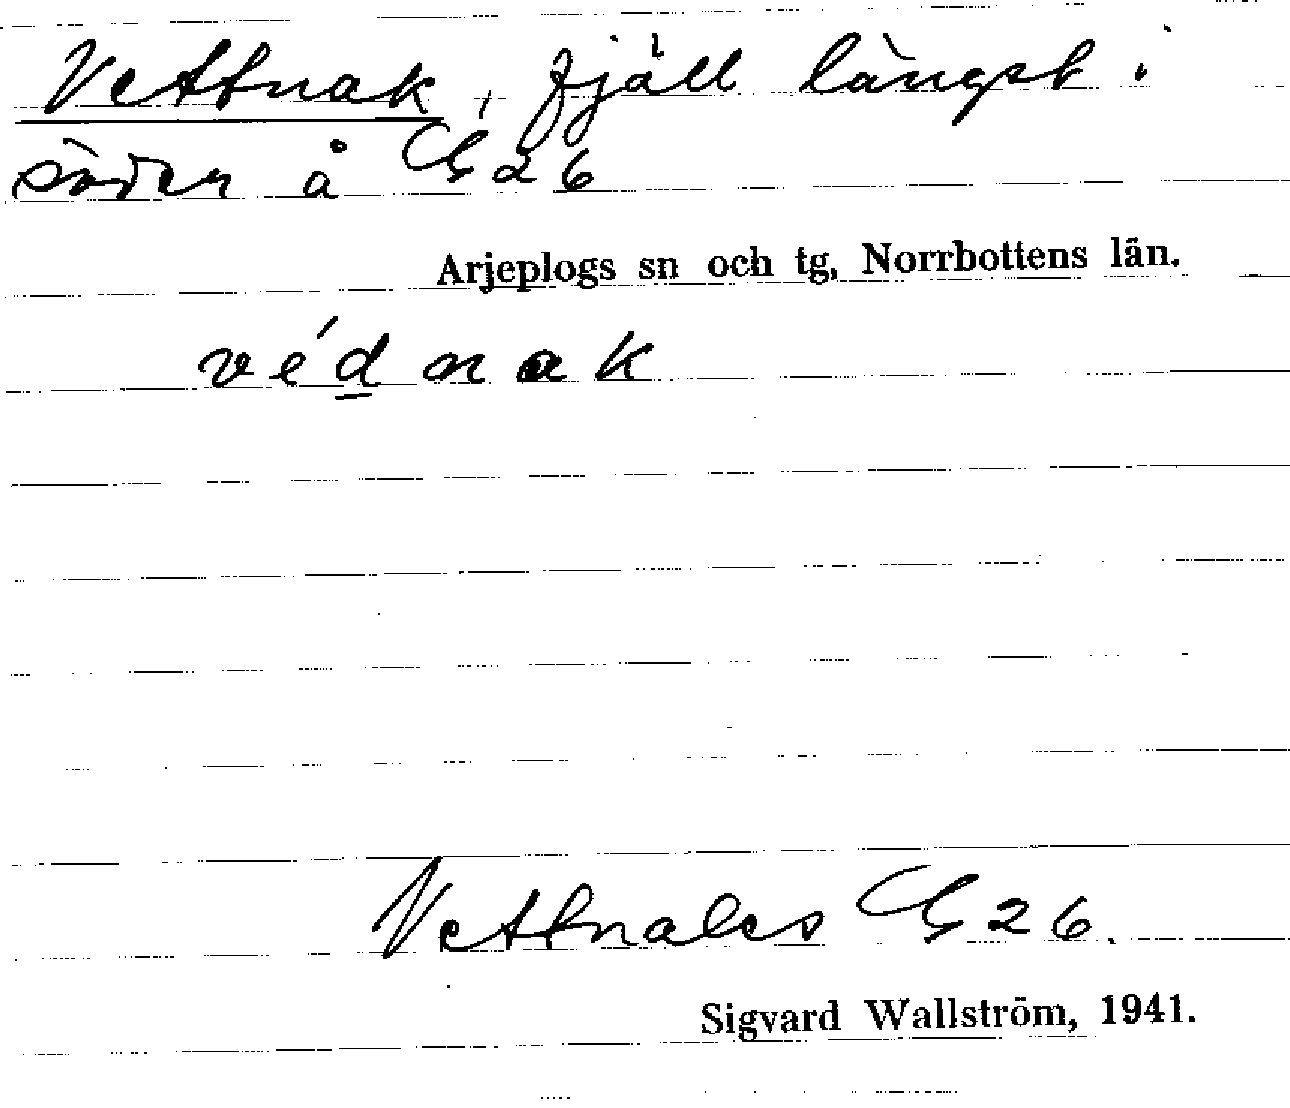 Vettnak, fjäll längst i
söder å G 26
Arjeplogs sn och tg, Norrbottens län.
védnak
Vettnales G 26.
Sigvard Wallström, 1941.